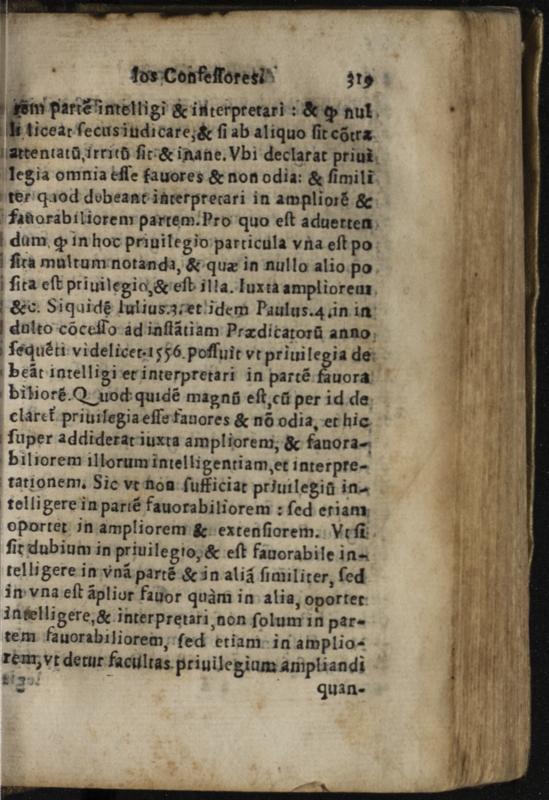 los Confessores. 319
rem partē intelligi & interpretari : & ꝙ nul
li liceat secus iudicare, & si ab aliquo sit cōtra
attentatū, irritū sit & inane. Vbi declarat priui
legia omnia esse fauores & non odia: & simili
ter quod debeant interpretari in ampliorē &
fauorabiliorem partem. Pro quo est aduerten
dum, ꝙ in hoc priuilegio particula vna est po
sita multum notanda, & quæ in nullo alio po
sita est priuilegio, & est illa. Iuxta ampliorem
&c. Siquidē Iulius.3. et idem Paulus.4. in in
dulto cōcesso ad instātiam Prædicatorū anno
sequēti videlicet.1556. possuit vt priuilegia de
beāt intelligi et interpretari in partē fauora
biliorē. Quod quidē magnū est, cū per id de
claret priuilegia esse fauores & nō odia, et hic
super addiderat iuxta ampliorem, & fauora-
biliorem illorum intelligentiam, et interpre-
tationem. Sic vt non sufficiat priuilegiū in-
telligere in partē fauorabiliorem : sed etiam
oportet in ampliorem & extensiorem. Vt si
sit dubium in priuilegio, & est fauorabile in-
telligere in vnā partē & in aliā similiter, sed
in vna est āplior fauor quàm in alia, oportet
intelligere, & interpretari, non solum in par-
tem fauorabiliorem, sed etiam in amplio-
rem, vt detur facultas priuilegium ampliandi
quan-